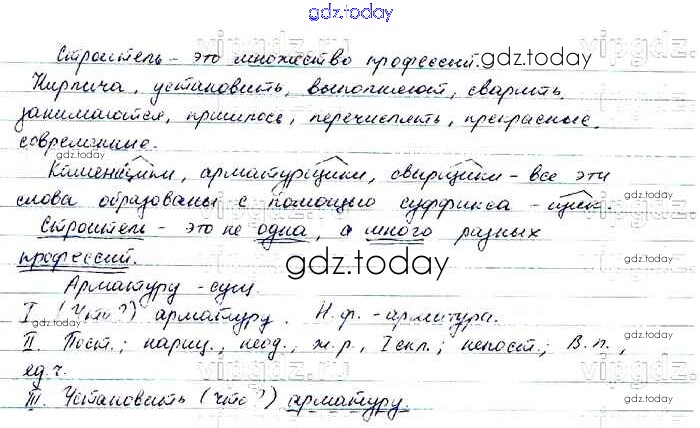 gdz.today
Строитель - это множество профессий.
gdz.today
Кирпича, установить, выполняют, сварить,
занимаются, пришлось, перечислять, прекрасные,
современные.
gdz.today
Каменщики, арматурщики, сварщики - все эти
слова образованы с помощью суффикса -щик-.
gdz.today
Строитель - это не одна, а много разных
профессий.
gdz.today
Арматуру - сущ.
I (Что?) арматуру. Н.ф. - арматура.
gdz.today
II. Пост.; нариц., неод., ж.р., I скл.; непост.; В.п.,
gdz.today
ед.ч.
III. Установить (что?) арматуру.
gdz.today